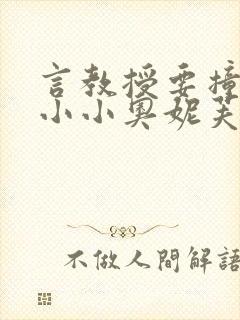 言教授要撞
小小奥妮芙
不做人間解語